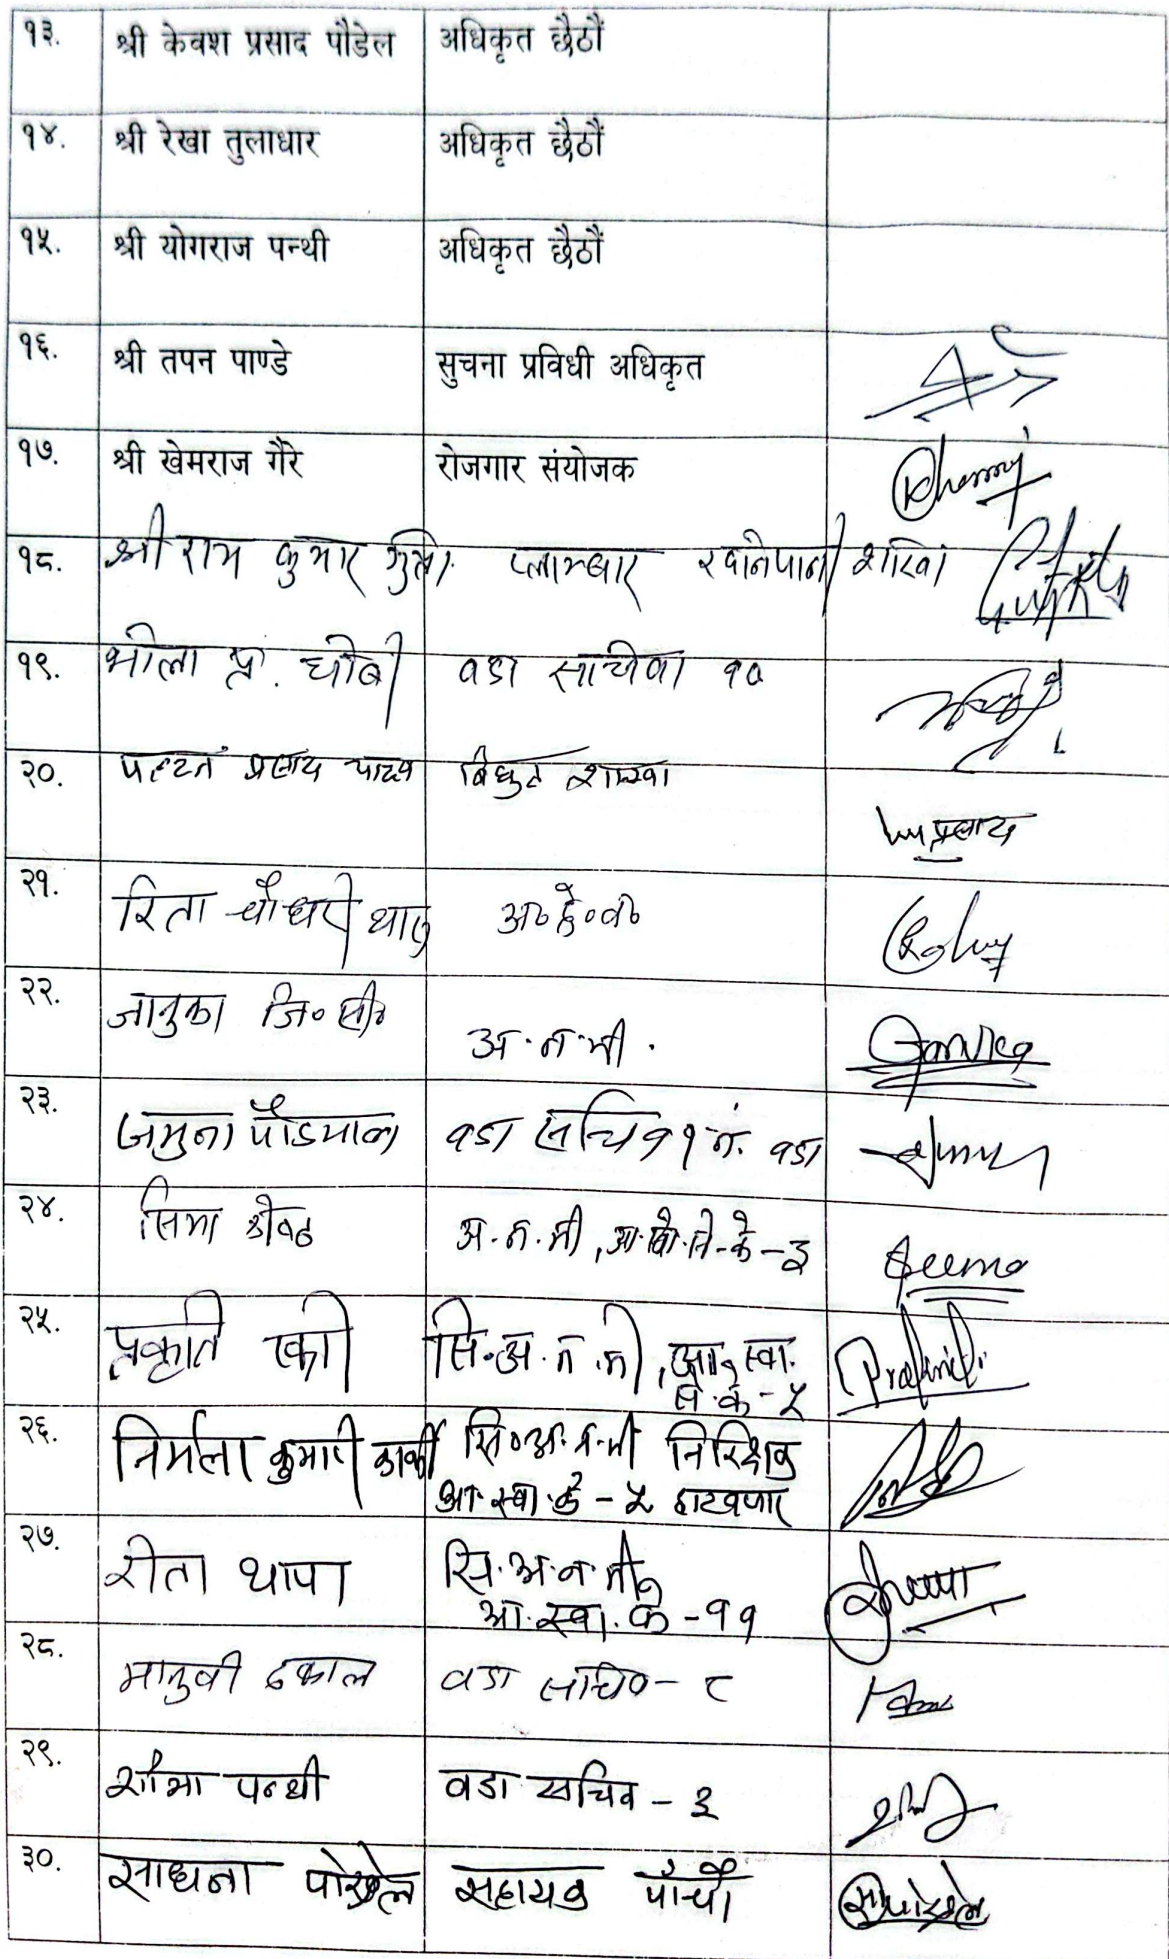 १३. श्री केवश प्रसाद पौडेल अधिकृत छैठौं
१४. श्री रेखा तुलाधार अधिकृत छैठौं
१५. श्री योगराज पन्थी अधिकृत छैठौं
१६. श्री तपन पाण्डे सुचना प्रविधी अधिकृत
१७. श्री खेमराज गैरे रोजगार संयोजक
१८. श्री राम कुमार गुप्ता प्लाम्बार खानेपानी शाखा
१९. भोला प्र. धोबी वडा सचिव १०
२०. प्रसाद यादव बिधुत शाखा
२१. रिता चौधरी थारु अ०हे०व०
२२. जानुका जि० सी० अ.न.मी.
२३. जमुना पौडयाल वडा सचिव १ नं. वडा
२४. सिमा केवट अ.न.मी, Seema
२५. प्रकृति सि.अ.न.मी, स्वा. Prakriti
से.के-५
२६. निर्मला कुमारी कार्की सि०अ.न.मी निरिक्षक
आ.स्वा.के-५ हाटबजार
२७. रीता थापा सि.अ.न.मी,
आ.स्वा.के-११
२८. मानुवी ढकाल वडा सचिव-८
२९. शोभा पन्थी वडा सचिव-३
३०. साधना पोखेल सहायक पाँचौ